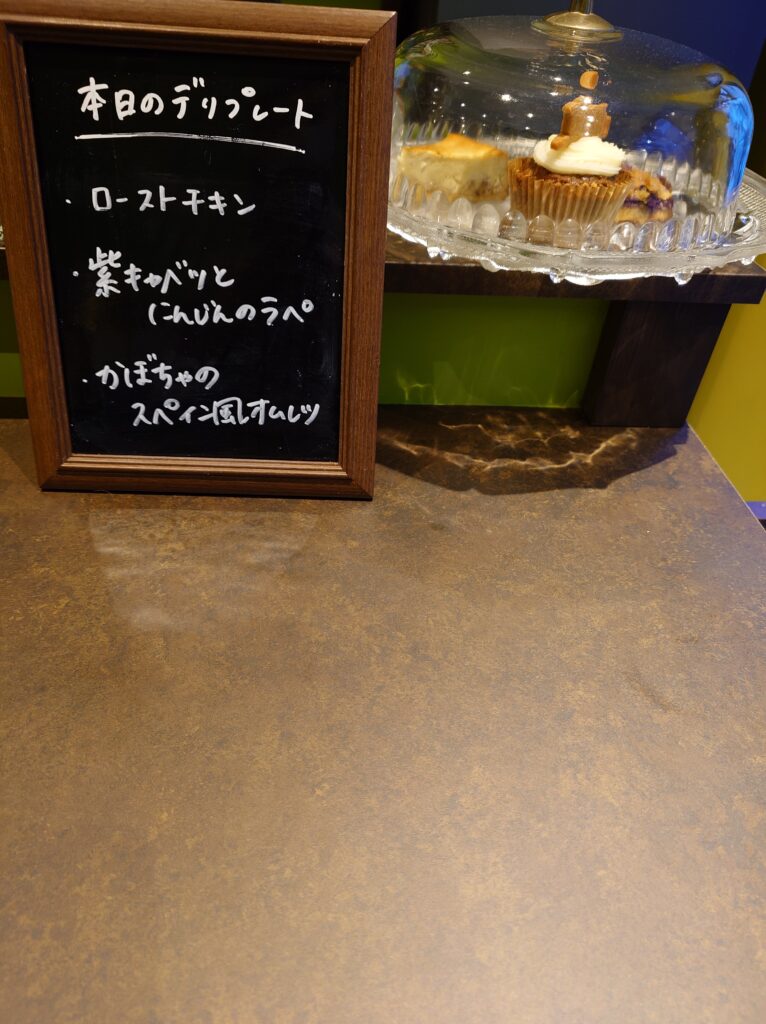 本日のデリプレート
・ローストチキン
・紫キャベツと
にんじんのラペ
・かぼちゃの
スペイン風オムレツ